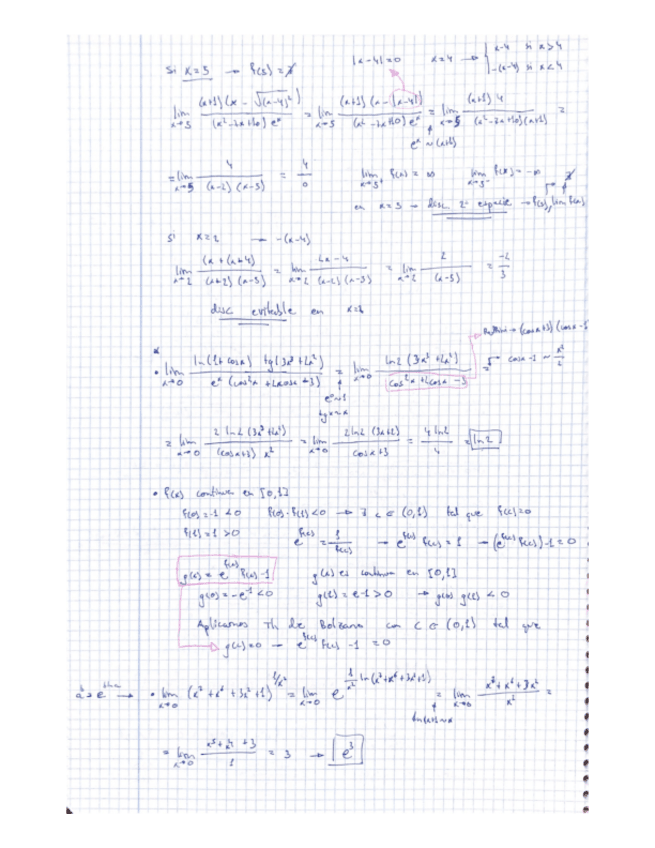 Si x=5 → f(5) = ∄   |x-4|=0   x=4 → { x-4 si x>4
-(x-4) si x<4
lim x→5 (x+1)(x - √(x-4)²) / (x²-7x+10) eˣ = lim x→5 (x+1)(x-|x-4|) / (x²-7x+10) eˣ = lim x→5 (x+1) 4 / (x²-7x+10)(x+1) =
eˣ ~ (x+1)
= lim x→5 4 / (x-2)(x-5) = 4/0   lim x→5⁺ f(x) = ∞   lim x→5⁻ f(x) = -∞
en x=5 → disc 2ª especie → f(5), lim f(x)
Si x=2 → -(x-4)
lim x→2 (x+(x+4)) / (x+2)(x-5) = lim x→2 2x-4 / (x-2)(x-5) = lim x→2 2 / (x-5) = -2/3
disc evitable en x=2
• lim x→0 ln(1+cosx) tg(3x³+2x²) / eˣ(cos²x+2cosx+3) = lim x→0 ln2 (3x³+2x²) / cos²x+2cosx-3 =
Ruffini → (cosx+3)(cosx-1
cosx-1 ~ x²/2
eˣ~1
tgx=x
= lim x→0 2 ln2 (3x³+2x²) / (cosx+3) x² = lim x→0 2ln2 (3x+2) / cosx+3 = 4 ln2 / 4 = ln2
• f(x) continua en [0,1]
f(0)=-1<0   f(0)·f(1)<0 → ∃ c ∈ (0,1) tal que f(c)=0
f(1)=1>0   e^f(c) = 1/f(c) → e^f(c) f(c)=1 → (e^f(c) f(c))-1=0
g(x)=e^f(x) f(x)-1   g(x) es continua en [0,1]
g(0)=-e⁻¹<0   g(1)=e-1>0 → g(0) g(1)<0
Aplicamos Th de Bolzano con c ∈ (0,1) tal que
g(c)=0 → e^f(c) f(c) -1 =0
→ • lim x→0 (x⁷+x⁶+3x²+1)^1/x² = lim x→0 e^(1/x² ln(x⁷+x⁶+3x²+1)) = lim x→0 x⁷+x⁶+3x² / x² =
ln(x+1)~x
= lim x→0 x⁵+x⁴+3 / 1 = 3 → e³